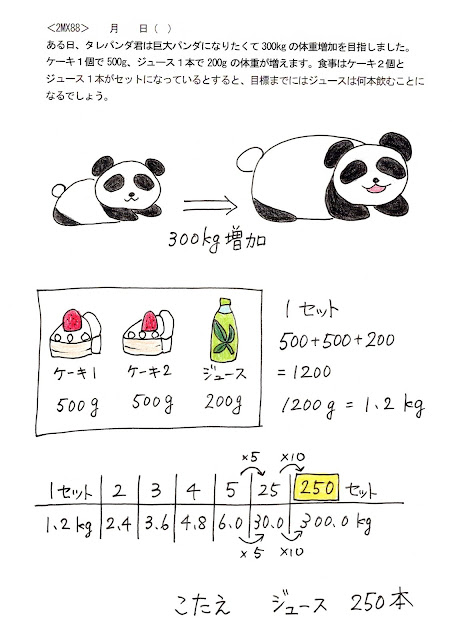 ＜2MX88＞　　月　　日（　）
ある日、タレパンダ君は巨大パンダになりたくて300kgの体重増加を目指しました。
ケーキ1個で500g、ジュース1本で200gの体重が増えます。食事はケーキ2個と
ジュース1本がセットになっているとすると、目標までにはジュースは何本飲むことに
なるでしょう。
300kg増加
ケーキ1 ケーキ2 ジュース
500g 500g 200g
1セット
500+500+200
=1200
1200g = 1.2kg
×5 ×10
1セット 2 3 4 5 25 250 セット
1.2kg 2.4 3.6 4.8 6.0 30.0 300.0 kg
×5 ×10
こたえ ジュース 250本